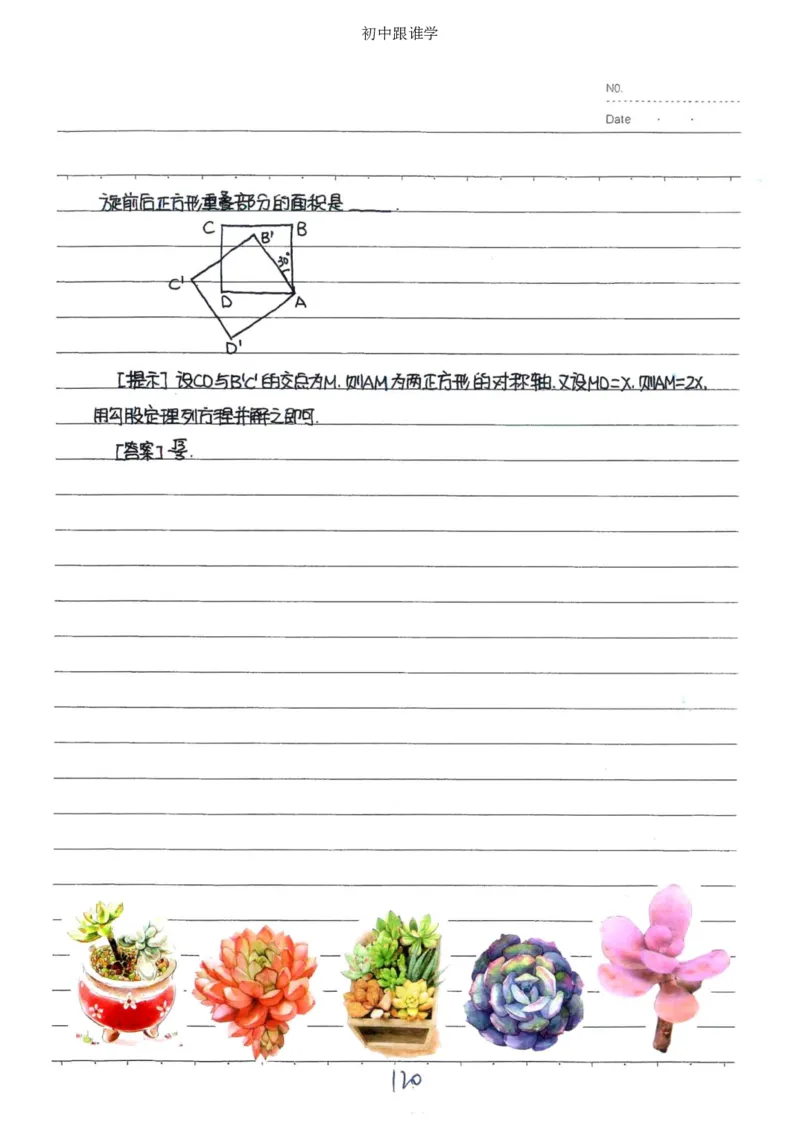 初中跟谁学
NO.
Date
旋前后正方形重叠部分的面积是____.
C B
B'
30°
C'
D A
D'
[提示] 设CD与B'C'的交点为M.则AM为两正方形的对称轴.又设MD=X.则AM=2X,
用勾股定理列方程并解之即可.
[答案] .
120